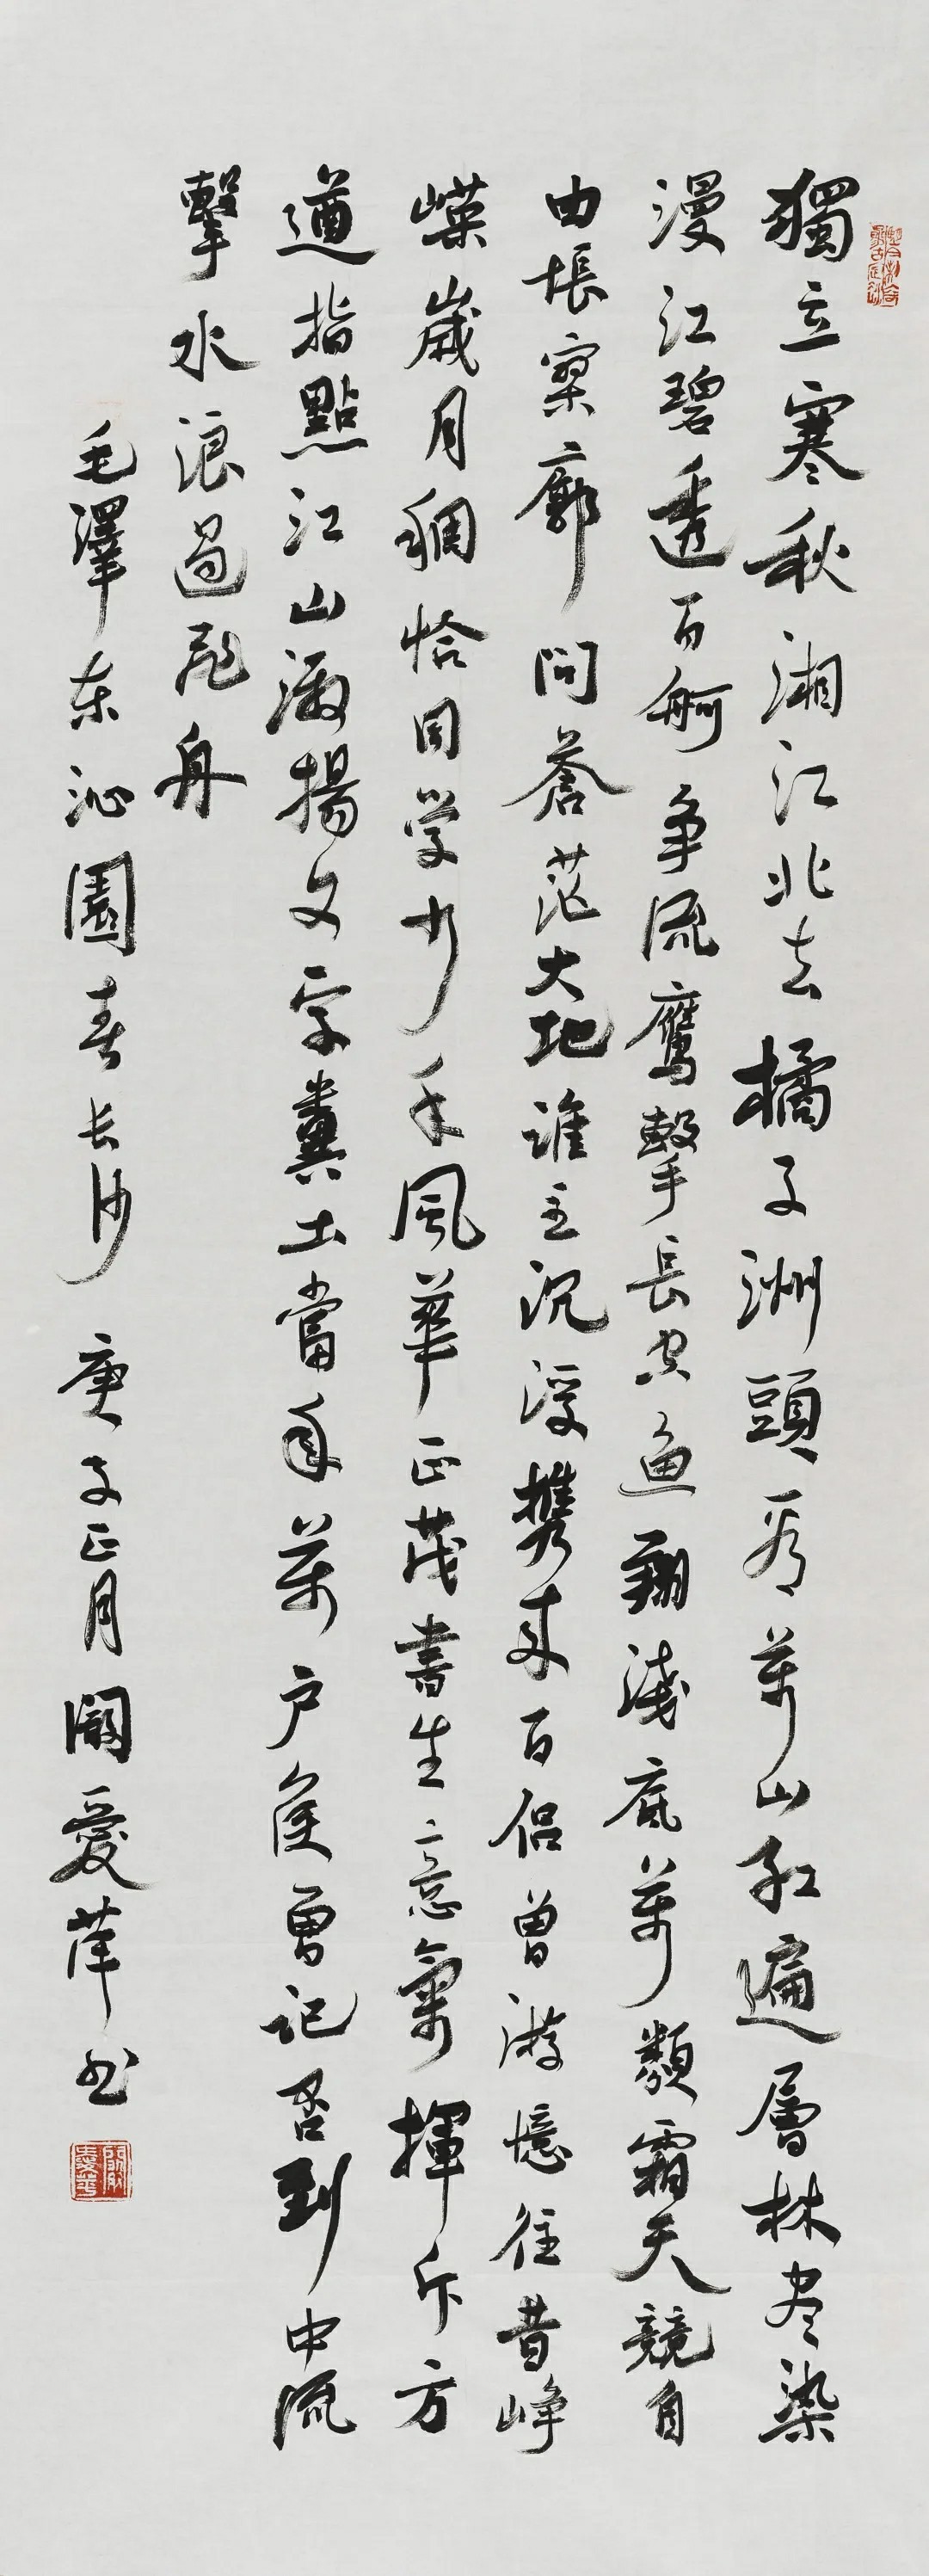 獨立寒秋湘江北去橘子洲頭看萬山紅遍層林尽染
漫江碧透百舸争流鷹擊長空魚翔淺底萬類霜天競自
由悵寥廓問蒼茫大地誰主沉浮携来百侣曾游憶往昔崢
嶸歲月稠恰同学少年風華正茂書生意氣揮斥方
遒指點江山激揚文字糞土當年萬户侯曾記否到中流
擊水浪遏飛舟
毛澤东沁園春长沙 庚子正月闞愛萍书